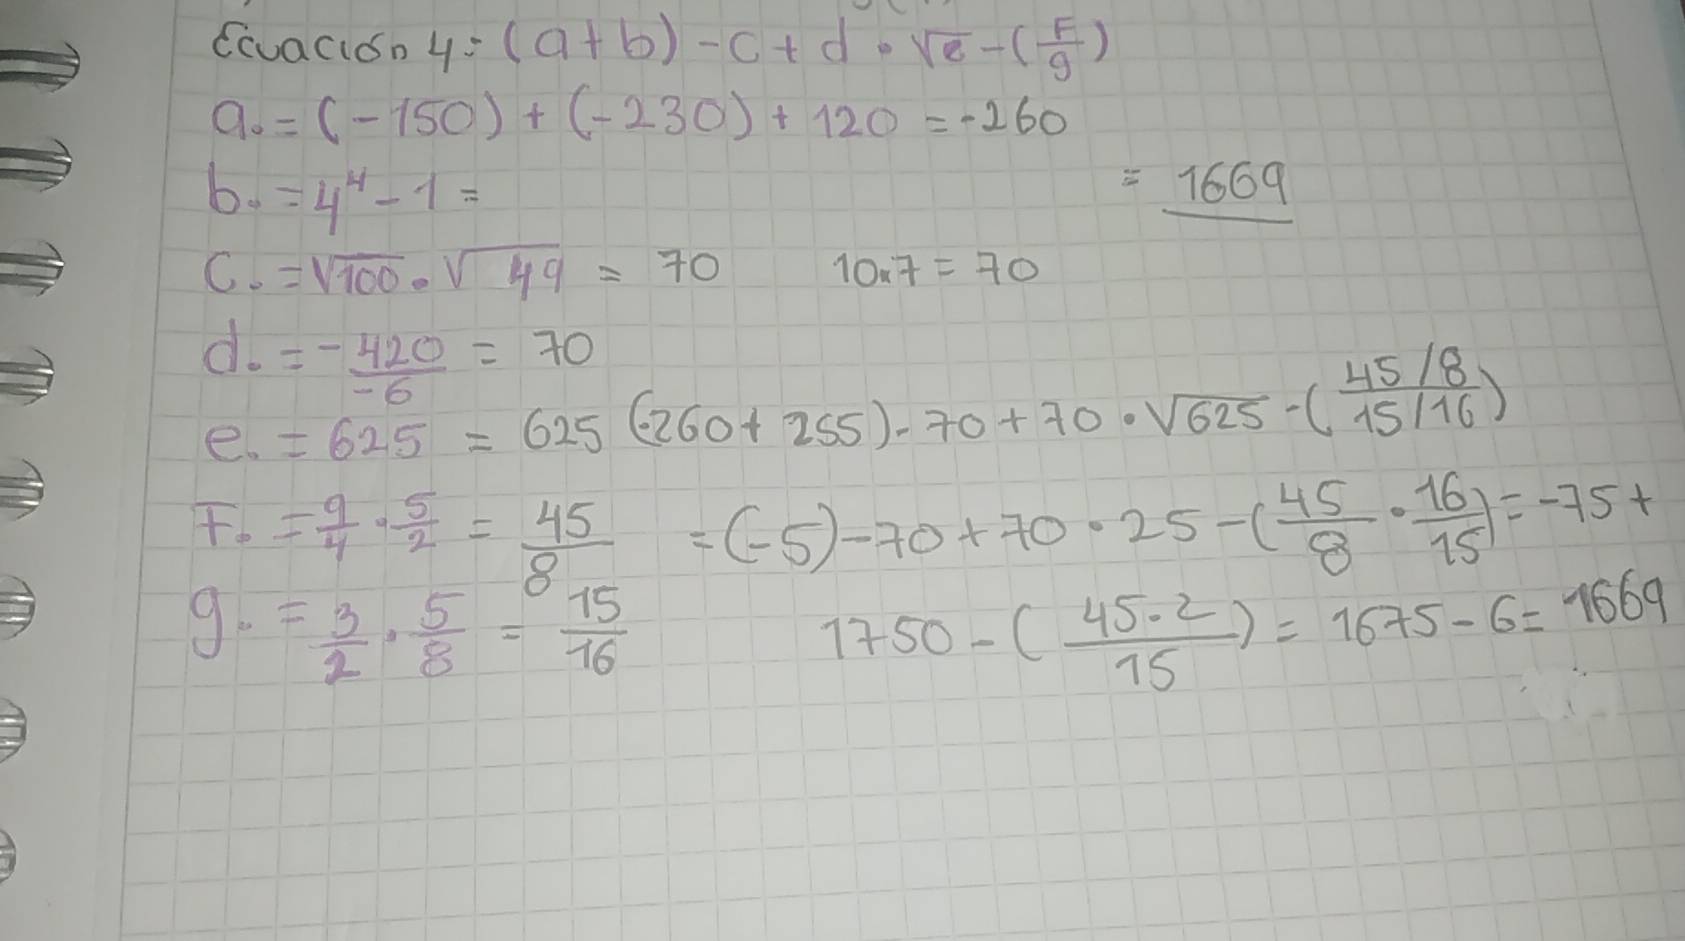 Ecuación 4= (a+b) -c + d · √e - (F/g)
a. = (-150) + (-230) + 120 = -260
b. = 4⁴ - 1 =
= 1669
c. = √100 · √49 = 70 10x7 = 70
d. = -420/-6 = 70
e. = 625 = 625 (-260 + 255) - 70 + 70 · √625 - (45/8 / 15/16)
F. = 9/4 · 5/2 = 45/8 = (-5) - 70 + 70 · 25 - (45/8 · 16/15) = -75 +
g. = 3/2 · 5/8 = 15/16 1750 - (45·2/15) = 1675 - 6 = 1669